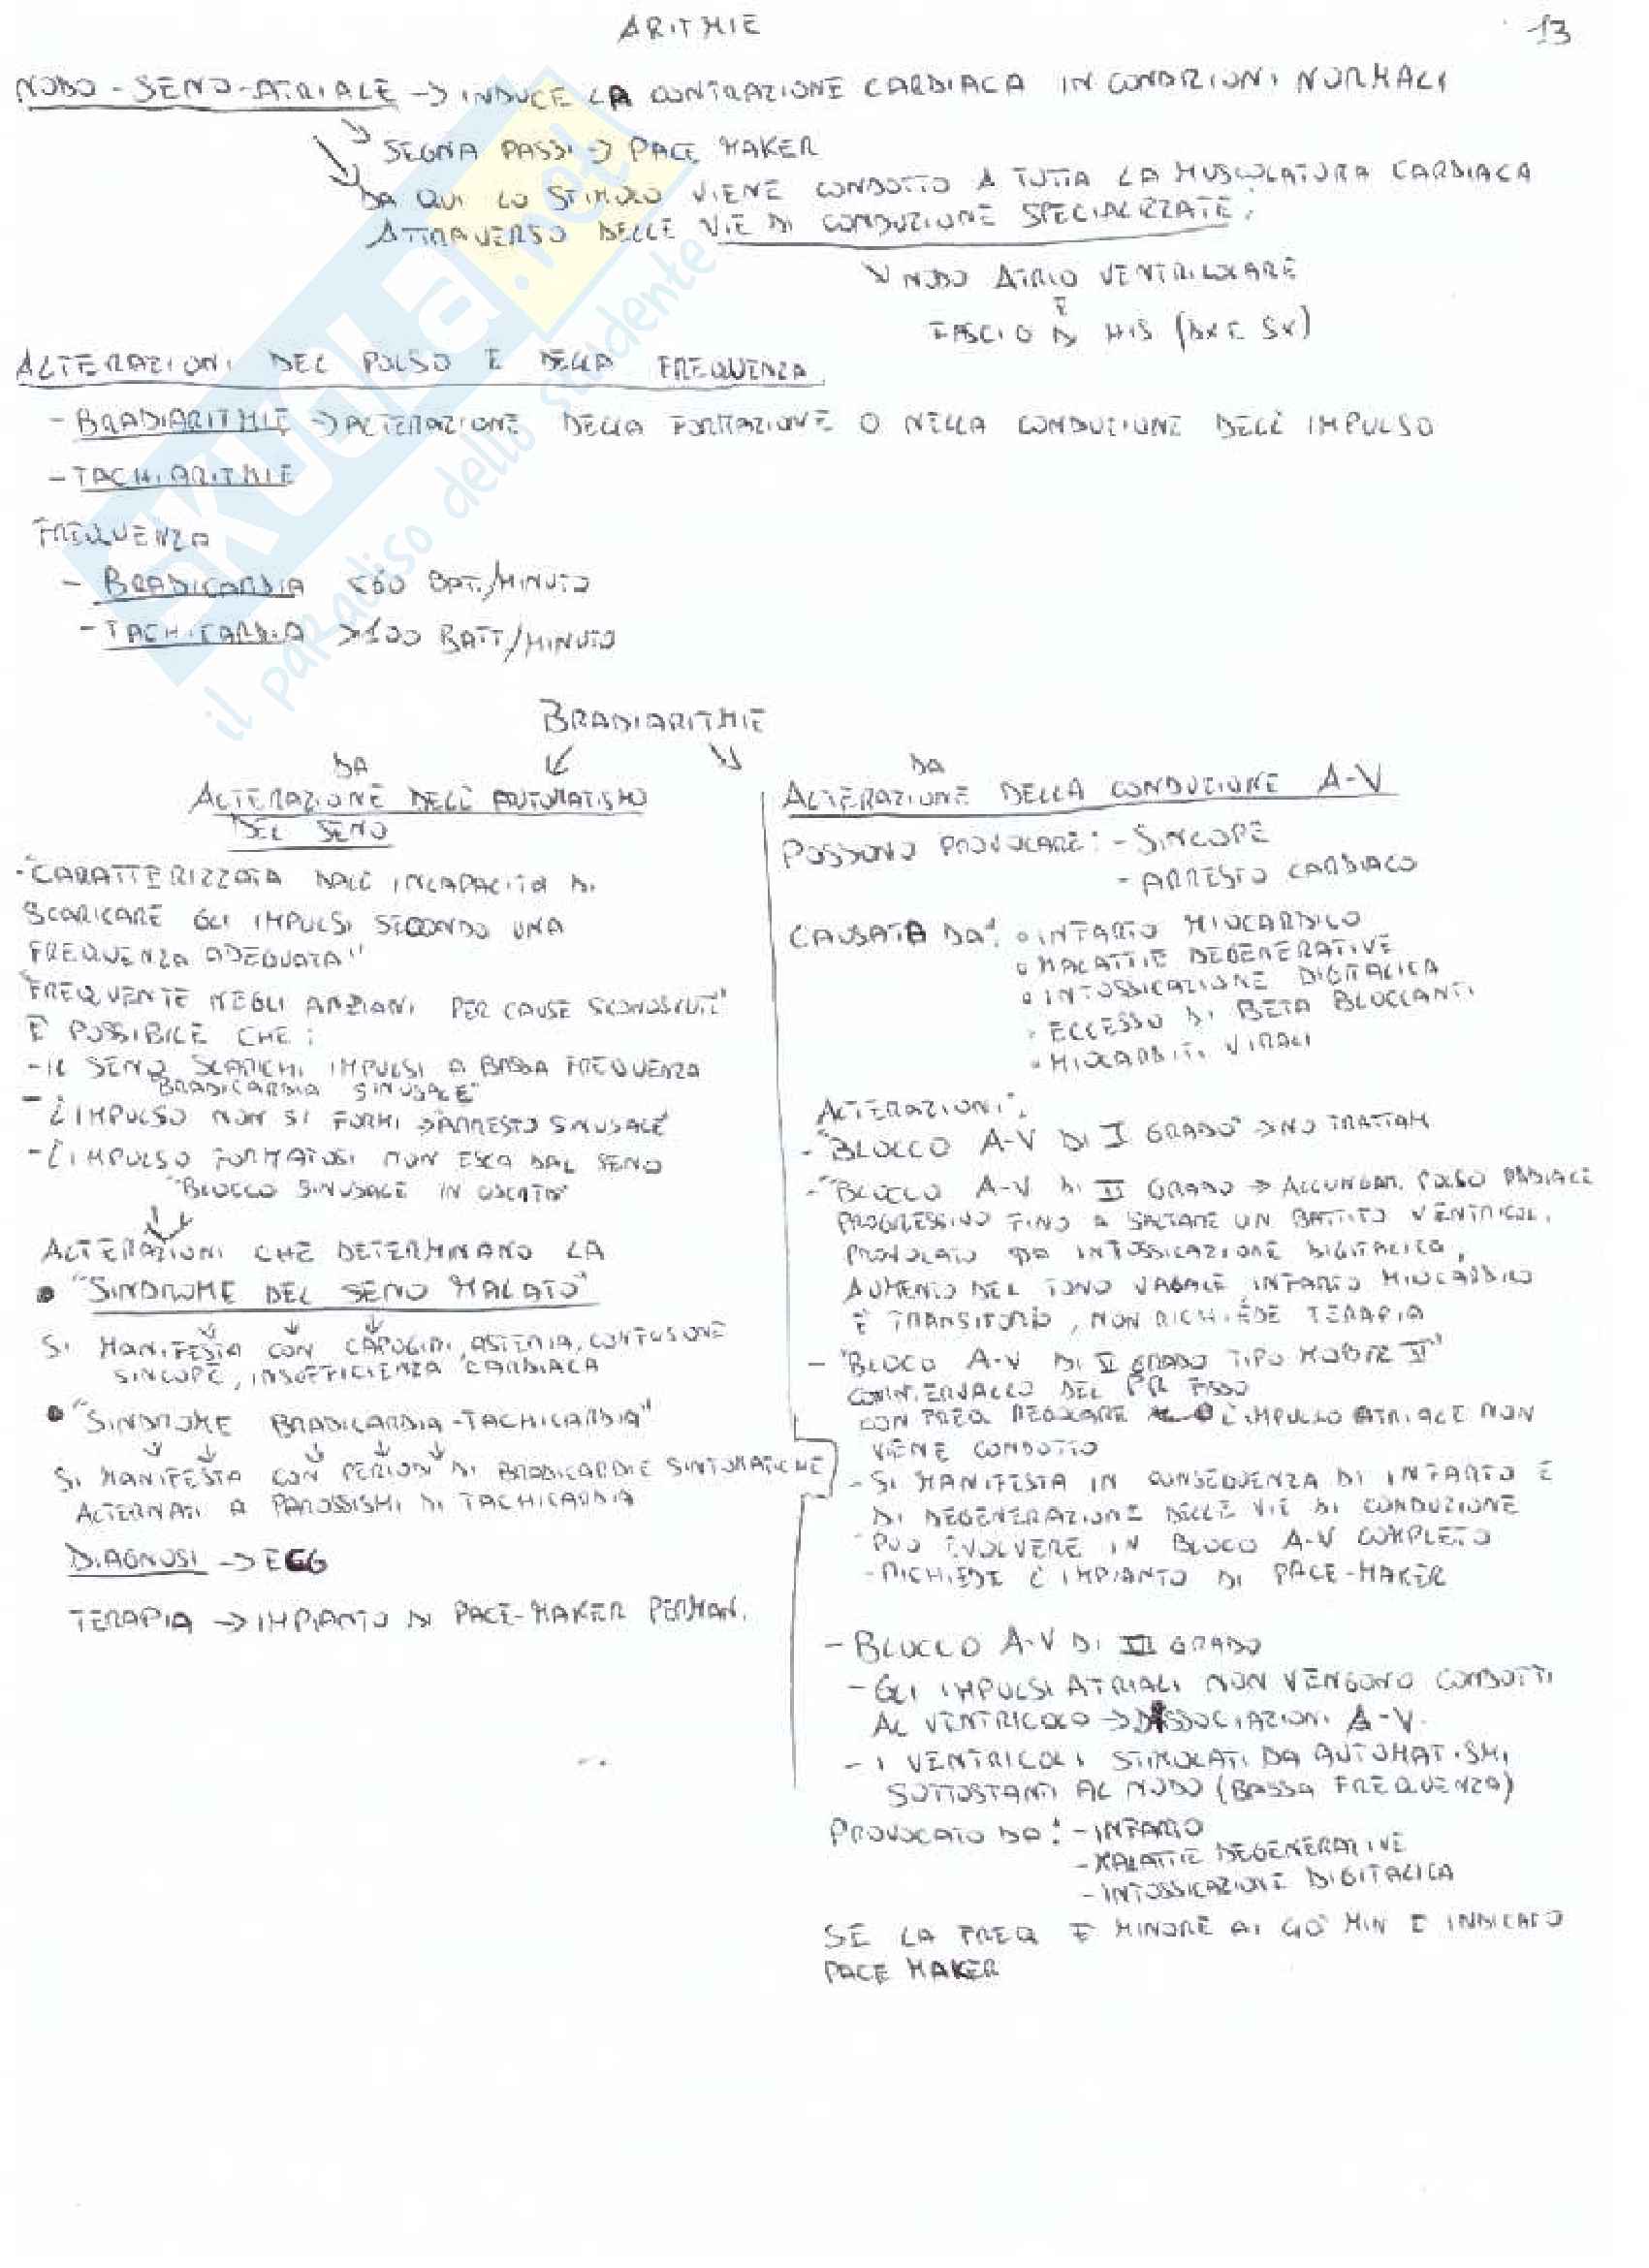 ARITMIE
13
NODO-SENO-ATRIALE → INDUCE LA CONTRAZIONE CARDIACA IN CONDIZIONI NORMALI
SEGNA PASSI → PACE MAKER
DA QUI LO STIMOLO VIENE CONDOTTO A TUTTA LA MUSCOLATURA CARDIACA
ATTRAVERSO DELLE VIE DI CONDUZIONE SPECIALIZZATE:
NODO ATRIO VENTRICOLARE
E
FASCIO DI HIS (DX E SX)
ALTERAZIONI DEL POLSO E DELLA FREQUENZA
- BRADIARITMIE → ALTERAZIONE DELLA FORMAZIONE O NELLA CONDUZIONE DELL'IMPULSO
- TACHIARITMIE
FREQUENZA
- BRADICARDIA <60 BAT./MINUTO
- TACHICARDIA >100 BATT/MINUTO
SKUOLA.net
il paradiso dello studente
BRADIARITMIE
DA
ALTERAZIONE DELL'AUTOMATISMO
DEL SENO
-"CARATTERIZZATA DALL'INCAPACITÀ DI
SCARICARE GLI IMPULSI SECONDO UNA
FREQUENZA ADEGUATA"
"FREQUENTE NEGLI ANZIANI PER CAUSE SCONOSCIUTE"
È POSSIBILE CHE:
- IL SENO SCARICHI IMPULSI A BASSA FREQUENZA
"BRADICARDIA SINUSALE"
- L'IMPULSO NON SI FORMI → "ARRESTO SINUSALE"
- L'IMPULSO FORMATOSI NON ESCA DAL SENO
"BLOCCO SINUSALE IN USCITA"
ALTERAZIONI CHE DETERMINANO LA
• "SINDROME DEL SENO MALATO"
SI MANIFESTA CON CAPOGIRI, ASTENIA, CONFUSIONE
SINCOPE, INSUFFICIENZA CARDIACA
• "SINDROME BRADICARDIA-TACHICARDIA"
SI MANIFESTA CON PERIODI DI BRADICARDIE SINTOMATICHE
ALTERNATI A PAROSSISMI DI TACHICARDIA
DIAGNOSI → ECG
TERAPIA → IMPIANTO DI PACE-MAKER PERMAN.
DA
ALTERAZIONE DELLA CONDUZIONE A-V
POSSONO PROVOCARE: - SINCOPE
- ARRESTO CARDIACO
CAUSATA DA: • INFARTO MIOCARDICO
• MALATTIE DEGENERATIVE
• INTOSSICAZIONE DIGITALICA
• ECCESSO DI BETA BLOCCANTI
• MIOCARDITI VIRALI
ALTERAZIONI:
- "BLOCCO A-V DI I GRADO" → NO TRATTAM
- "BLOCCO A-V DI II GRADO → ALLUNGAM. POLSO RADIALE
PROGRESSIVO FINO A SALTARE UN BATTITO VENTRICOL.
PROVOCATO DA INTOSSICAZIONE DIGITALICA,
AUMENTO DEL TONO VAGALE, INFARTO MIOCARDICO
È TRANSITORIO, NON RICHIEDE TERAPIA
- "BLOCO A-V DI II GRADO TIPO MOBITZ II"
CON INTERVALLO DEL PR FISSO
CON FREQ. REGOLARE L'IMPULSO ATRIALE NON
VIENE CONDOTTO
- SI MANIFESTA IN CONSEGUENZA DI INFARTO E
DI DEGENERAZIONE DELLE VIE DI CONDUZIONE
- PUÒ EVOLVERE IN BLOCO A-V COMPLETO
- RICHIEDE L'IMPIANTO DI PACE-MAKER
- BLOCCO A-V DI III GRADO
- GLI IMPULSI ATRIALI NON VENGONO CONDOTTI
AL VENTRICOLO → DISSOCIAZIONI A-V.
- I VENTRICOLI STIMOLATI DA AUTOMATISMI
SOTTOSTANTI AL NODO (BASSA FREQUENZA)
PROVOCATO DA: - INFARTO
- MALATTIE DEGENERATIVE
- INTOSSICAZIONE DIGITALICA
SE LA FREQ È MINORE AI 40 MIN È INDICATO
PACE MAKER